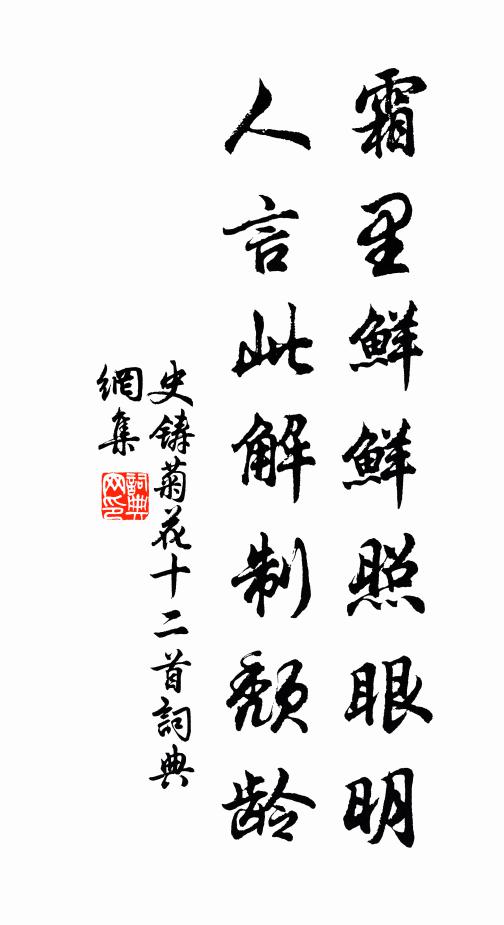 霜里鲜鲜照眼明
人言此解制颓龄
史鑄菊花十二首詞典
網集
詞典
网印